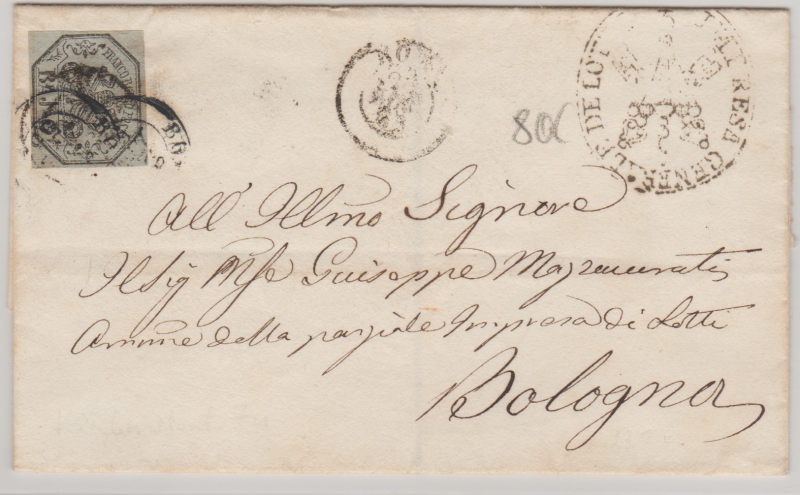 FRANCO
BO
806
RESA GENER
LE DE LO
All' Illmo Signore
Il Sig Mse Guiseppe Mazzacurati
Ammne della parziale Impresa di Lotti
Bologna